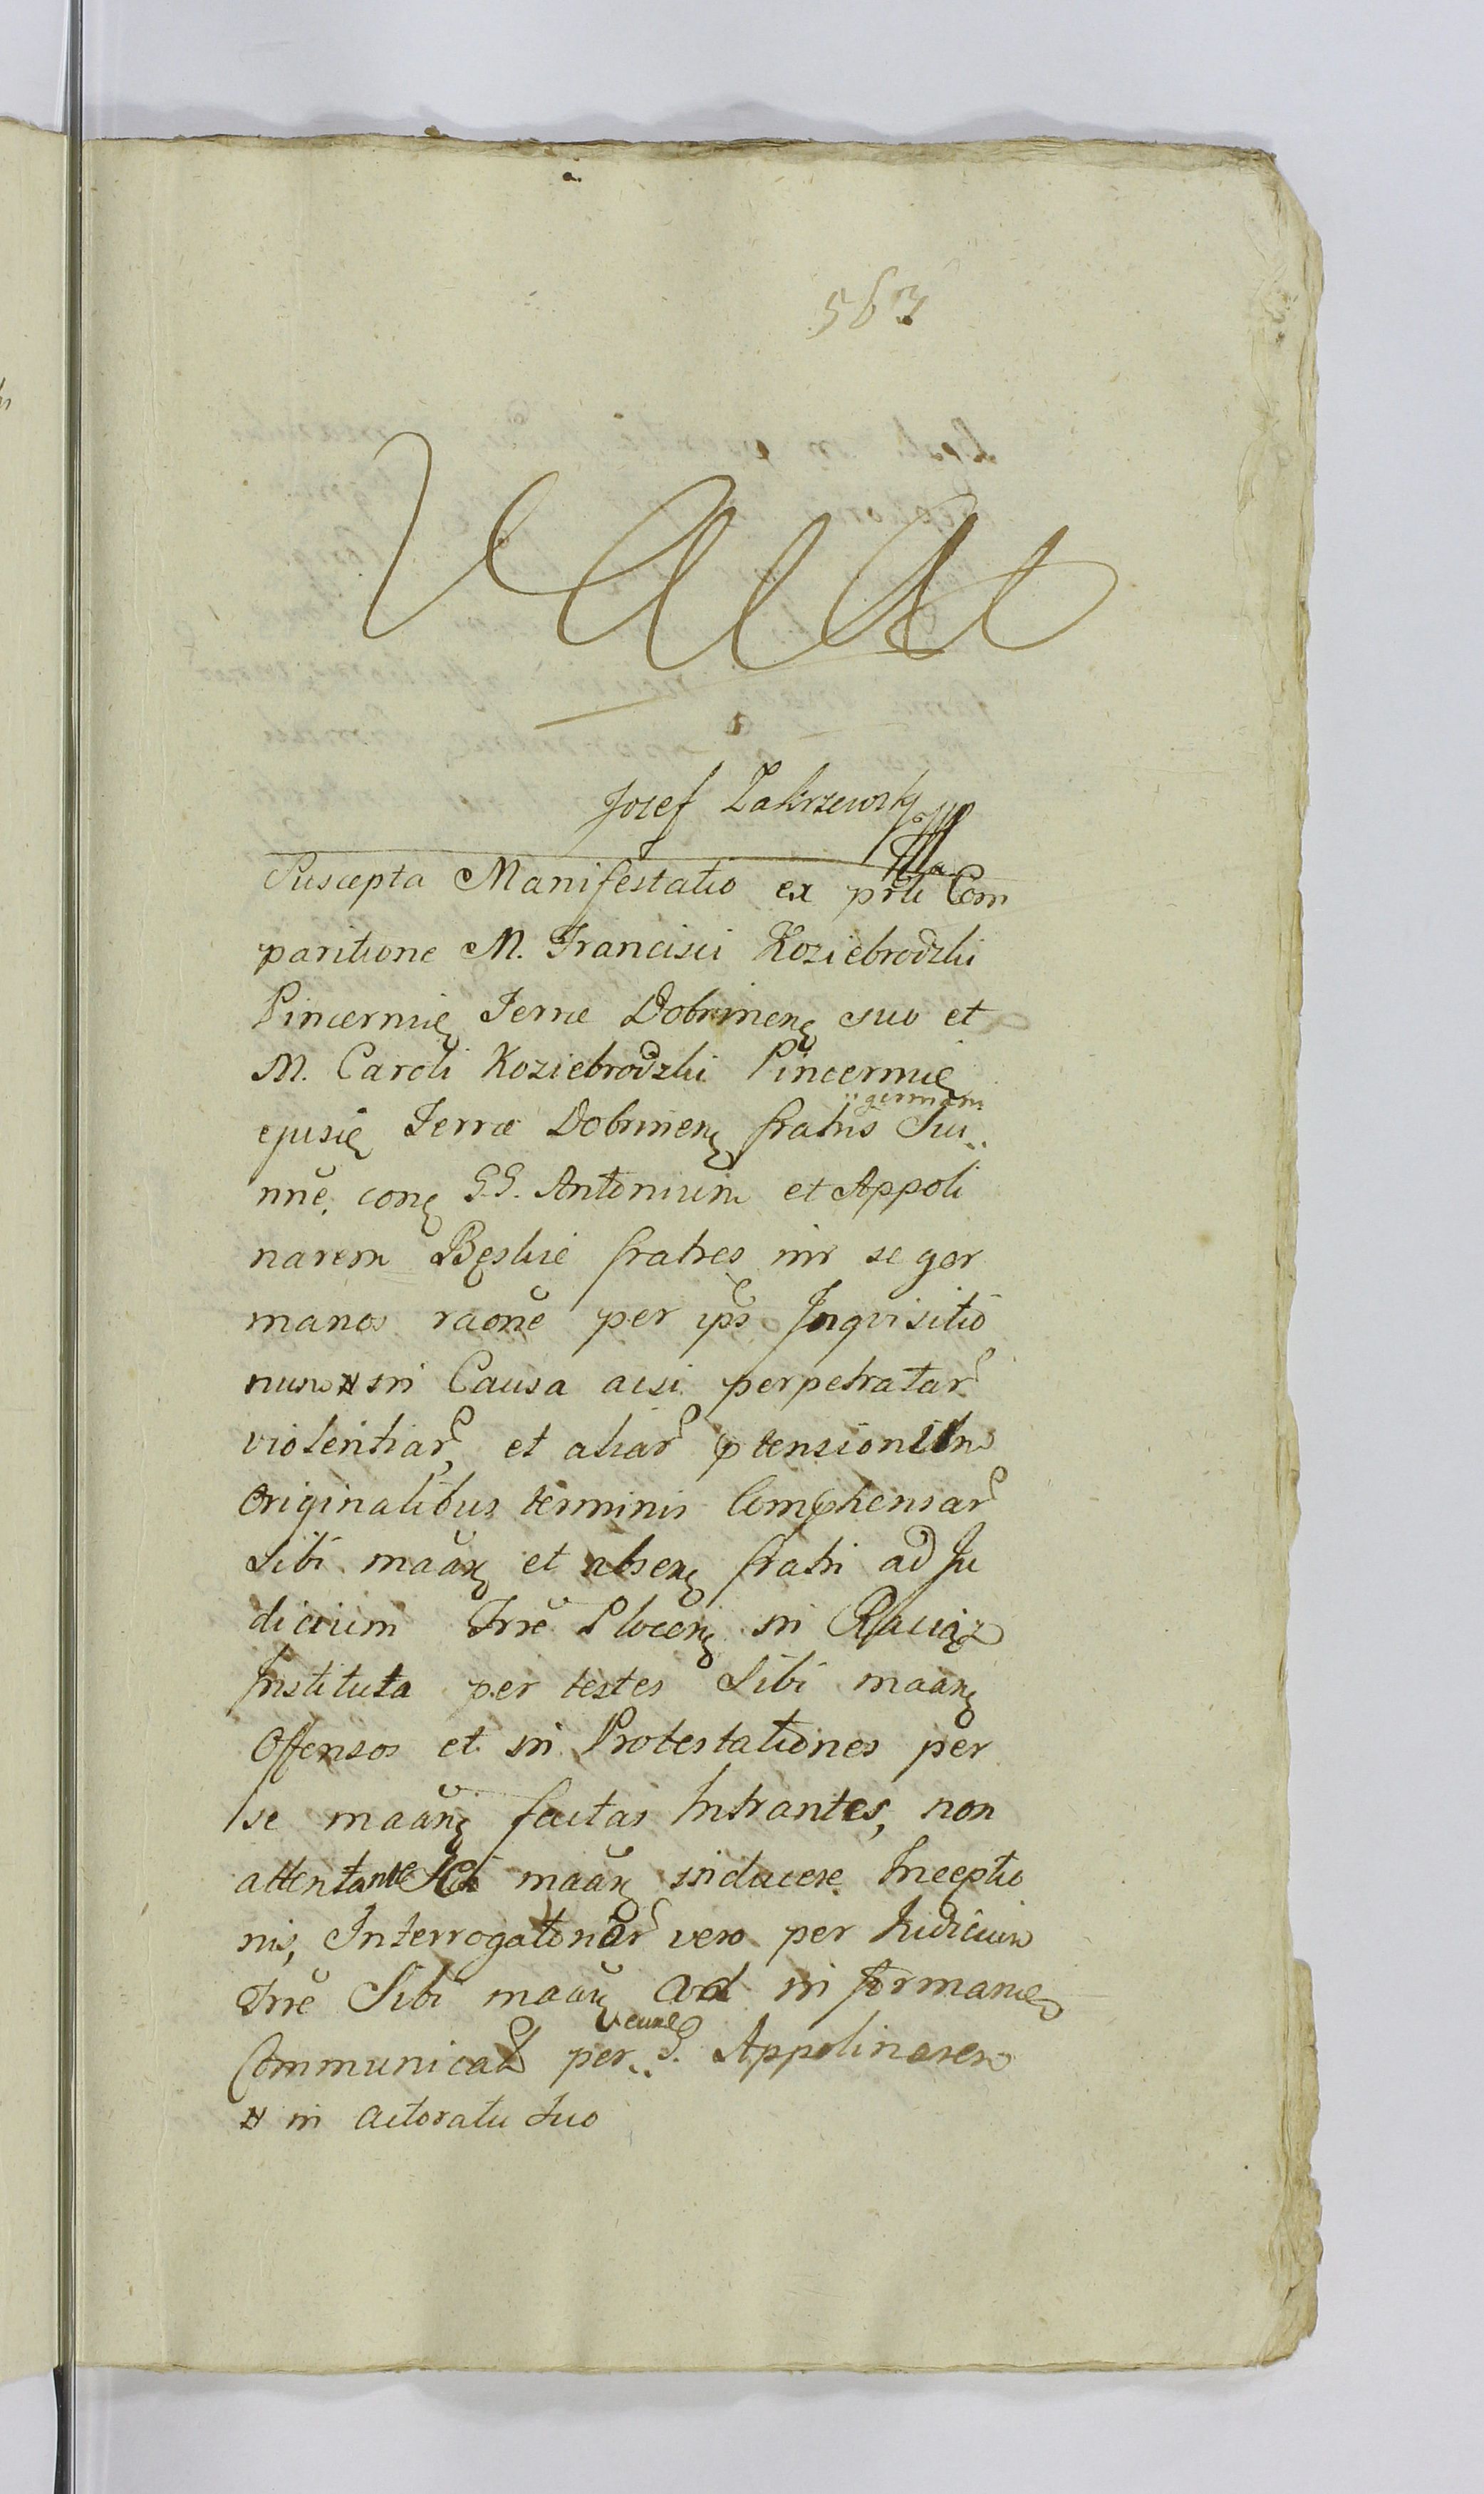 563
Vacat
Jozef Zakrzewsky
Suscepta Manifestatio ex prli Com
paritione M. Francisci Koziebrodzki
Pincernię Terræ Dobrinenę suo et
M. Caroli Koziebrodzki Pincernię
germani
ejusię Terræ Dobrinenę fratris Sui
nne. conę GG. Antonium et Appoli
narem Bęskie fratres inr se ger
manos raone per ips Inqvisitio
num # in Causa acsi perpetratar
violentiar, et aliar ptensionum
Originalibus terminis Comphensar
Sibi maanę et absenę fratri ad Ju
dicium Trre Plocenę in Raciąz
Instituta per testes Sibi maanę
Offensos et in Protestationes per
se maanę factas Intrantes, non
attentante maanę inducere Inceptio
nis, Interrogatoriar vero per Judicium
Trre Sibi maanę ad informanę
eune
Communicat per G. Appolinarem
# in actoratu suo